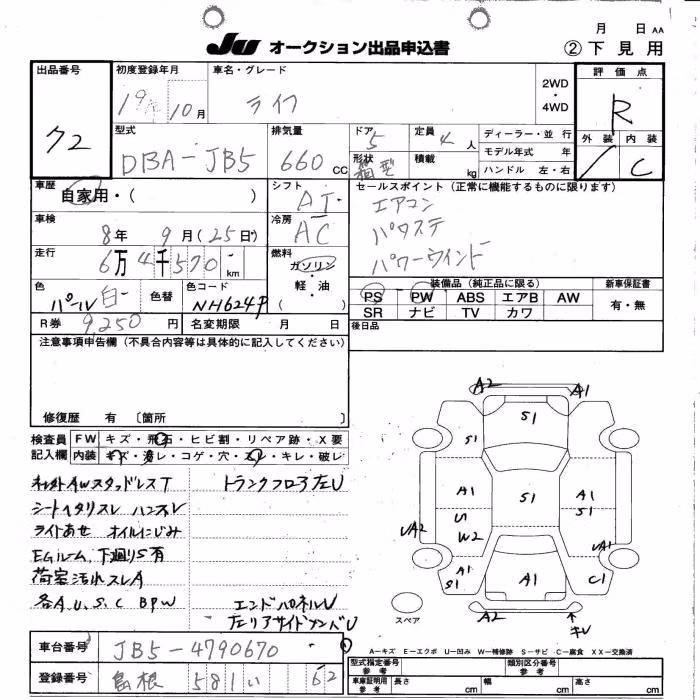 月 日 AA
Ju オークション出品申込書
② 下見用
出品番号 72
初度登録年月 19年 10月
車名・グレード ライフ
2WD・4WD
評価点 R
外装 内装 C
型式 DBA-JB5
排気量 660 CC
ドア 5
形状 箱型
定員 4 人
積載 kg
ディーラー・並行
モデル年式 年
ハンドル 左・右
車歴 自家用・( )
シフト AT
セールスポイント(正常に機能するものに限ります)
エアコン
パワステ
パワーウインド
車検 8年 9月(25日)
冷房 AC
走行 6万4千570 km
燃料 ガソリン・軽油・( )
色 パール 白
色替
色コード NH624P
装備品(純正品に限る)
PS PW ABS エアB AW
SR ナビ TV カワ
新車保証書 有・無
R券 9,250 円
名変期限 月 日
後日品
注意事項申告欄(不具合内容等は具体的に記入してください)
修復歴 有 〔箇所 〕
検査員記入欄
FW キズ・飛石・ヒビ割・リペア跡・X要
内装 キズ・汚レ・コゲ・穴・スレ・キレ・破レ
社外AWスタッドレスT
トランクフロア左U
シートヘタリスレ ハンスレ
ライトあせ オイルにじみ
EGルーム、下廻りS有
荷室汚れスレA
各A.U.S.C BPW
エンドパネルU
左リアサイドメンバU
A2
A1
S1
S1
A1
S1
A1
S1
U
W2
UA2
UA1
A1
S1
A1
C1
A2
キレ
スペア
A-キズ E-エクボ U-凹み W-補修跡 S-サビ C-腐食 XX-交換済
車台番号 JB5-4790670
登録番号 島根 581 い 62
型式指定番号 参考
類別区分番号 参考
車庫証明用 参考
長さ cm 幅 cm 高さ cm